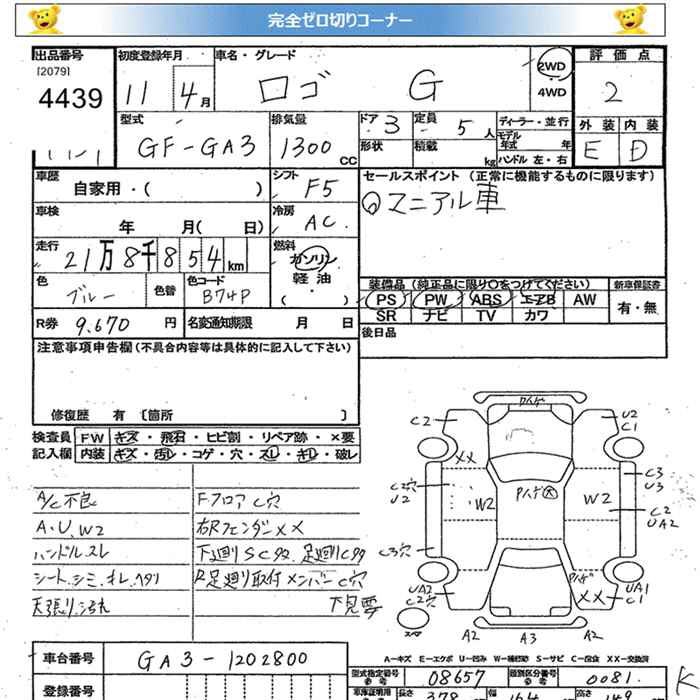 完全ゼロ切りコーナー
出品番号 初度登録年月 車名・グレード 評価点
[2079]
4439 11 4月 ロゴ G 2WD 4WD 2
型式 排気量 ドア 3 定員 5人 ディーラー・並行 外装 内装
GF-GA3 1300 CC 形状 積載 kg モデル年式 年 ハンドル 左・右 E D
車歴 自家用・( ) シフト F5 セールスポイント(正常に機能するものに限ります)
車検 年 月( 日) 冷房 AC ①マニアル車
走行 21万8千854km 燃料 ガソリン 軽油 ・( )
色 ブルー 色替 色コード B74P 装備品(純正品に限り○をつけてください) 新車保証書
PS PW ABS エアB AW 有・無
SR ナビ TV カワ
R券 9.670円 名変通知期限 月 日 後日品
注意事項申告欄(不具合内容等は具体的に記入して下さい)
修復歴 有[箇所 ]
検査員 FW キズ・飛石・ヒビ割・リペア跡・×要
記入欄 内装 キズ・汚レ・コゲ・穴・スレ・キレ・破レ
A/C不良 Fフロア C穴
A・U・W2 右Rフェンダー××
ハンドルスレ 下廻りSC 足廻りC
シート シミ・オレ・ヘタリ R足廻り取付メンバーC穴
天張り汚れ 下見要
C2 ワイパー U2
C1
××
C2穴 U2 W2 W2 C3 U3
C2 UA2
C3穴
UA2 C2穴 ×× UA1 C1
A2 A3 A2
A-キズ E-エクボ U-凹み W-補修跡 S-サビ C-腐食 XX-交換済
車台番号 GA3-1202800
型式指定番号 参考 08657 類別区分 参考 0081 K
登録番号 車庫証明用 長さ 378 幅 164 高さ 149